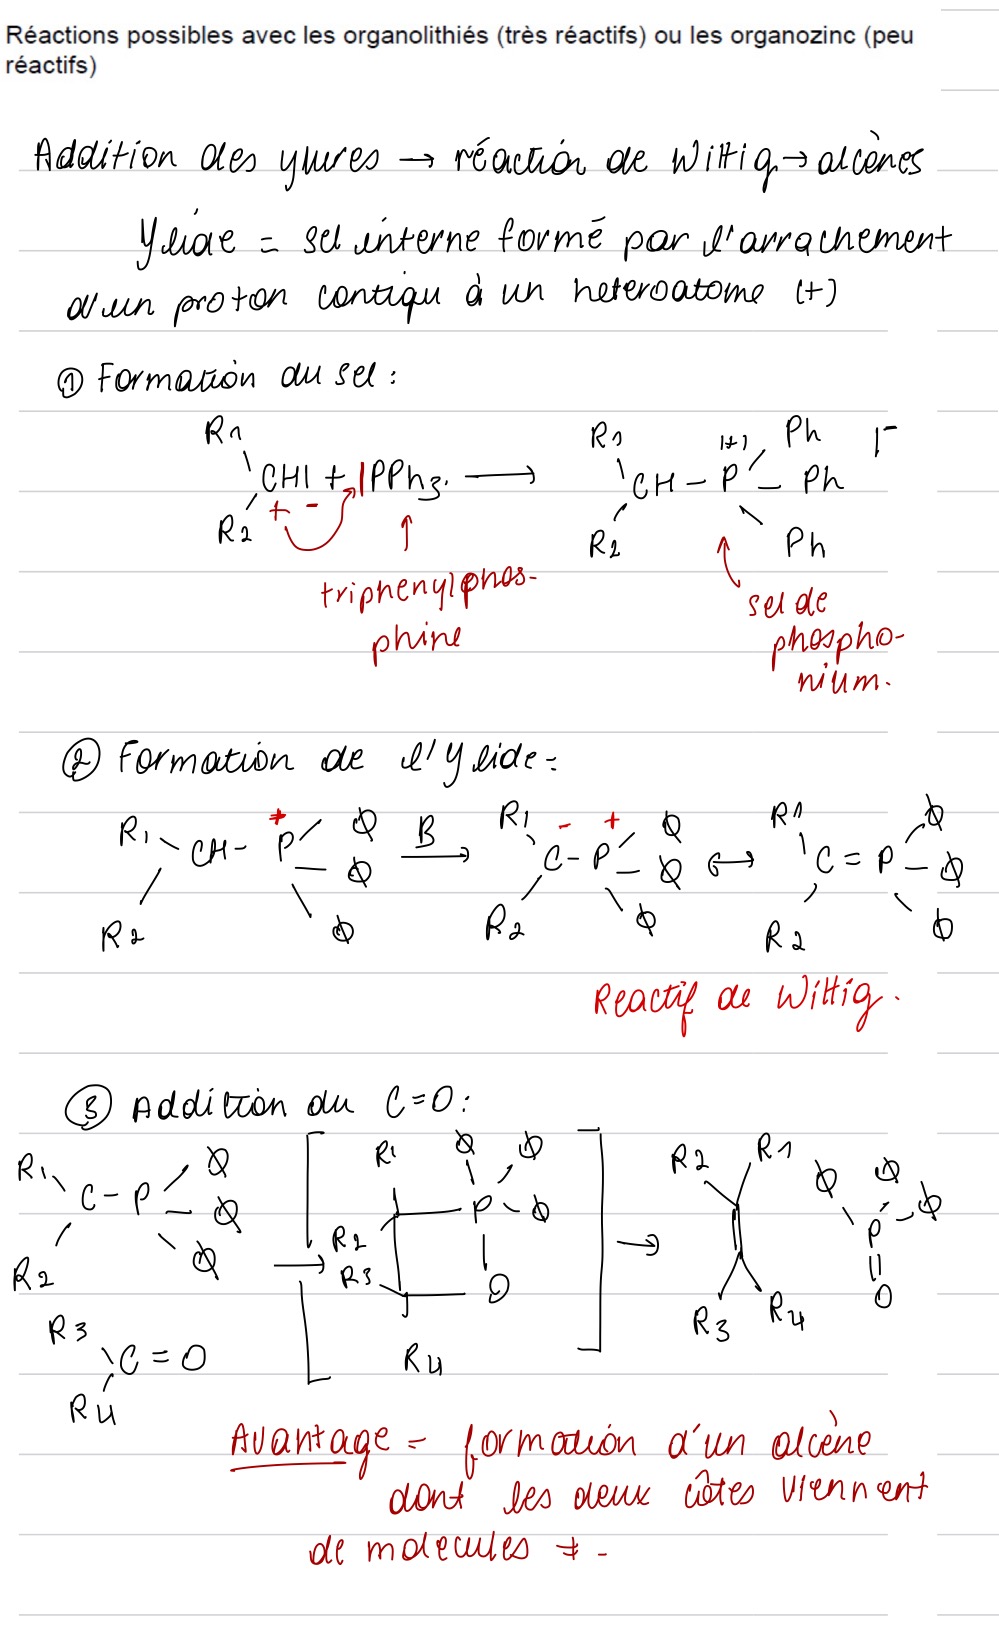 Réactions possibles avec les organolithiés (très réactifs) ou les organozinc (peu
réactifs)
Addition des ylures → réaction de Wittig → alcènes
Ylide = sel interne formé par l'arrachement
d'un proton contigu à un heteroatome (+)
① Formation du sel :
R1 R1 (+) Ph I-
CHI + |PPh3. → CH - P - Ph
+ -
R2 R2 Ph
triphenylphos-
phine
sel de
phospho-
nium.
② Formation de l'Ylide =
R1 + Φ B R1 - + Φ R1 Φ
CH - P - Φ → C - P - Φ ↔ C = P - Φ
R2 Φ R2 Φ R2 Φ
Reactif de Wittig.
③ Addition du C=O :
R1 Φ R1 Φ Φ R2 R1 Φ Φ
C - P - Φ P Φ P Φ
R2 Φ → R2 → ||
R3 O O
R3 R3 R4
C = O R4
R4
Avantage = formation d'un alcène
dont les deux côtes viennent
de molecules ≠ -